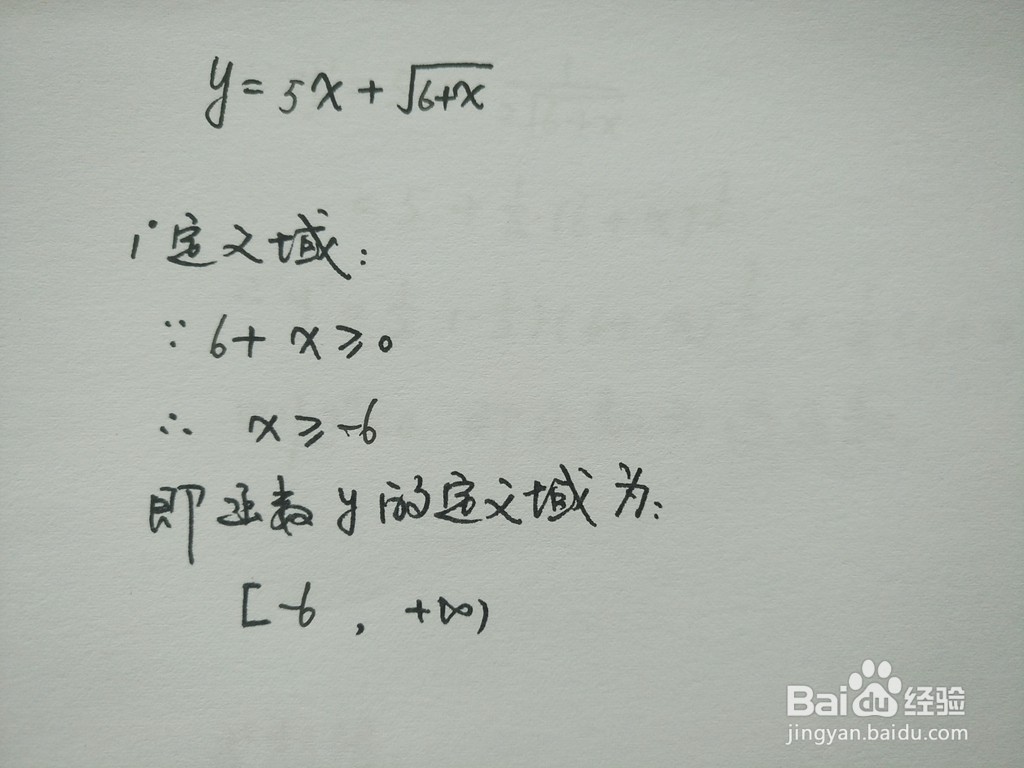 y = 5x + √6+x
1° 定义域:
∵ 6 + x ≥ 0
∴ x ≥ -6
即函数 y 的定义域为:
[-6 , +∞)
Bai du 经验
jingyan.baidu.com